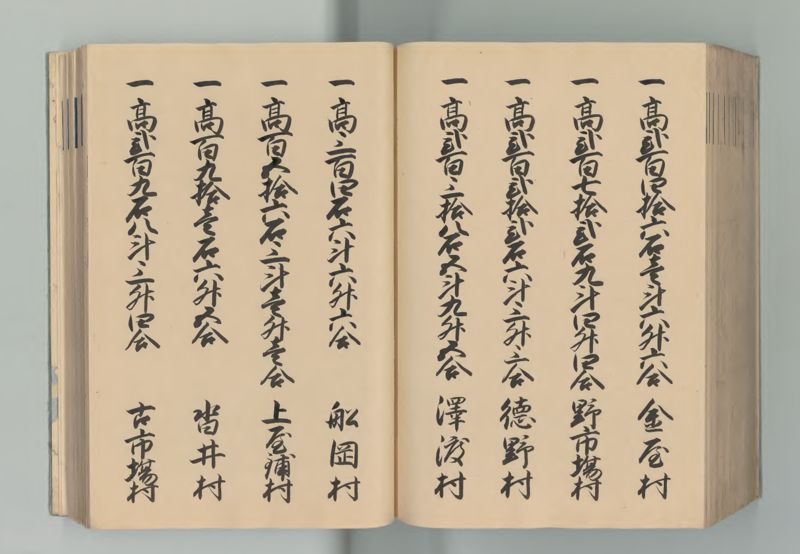 一 高弐百四拾六石壱斗六升六合 金屋村
一 高弐百七拾弐石九斗四升四合 野市場村
一 高弐百弐拾弐石六斗三升三合 徳野村
一 高弐百三拾八石五斗九升五合 澤渡村
一 高三百四石六斗六升六合 舩岡村
一 高百五拾六石三斗壱升壱合 上屋鋪村
一 高百九拾壱石六升五合 沓井村
一 高弐百九石八斗三升四合 古市場村